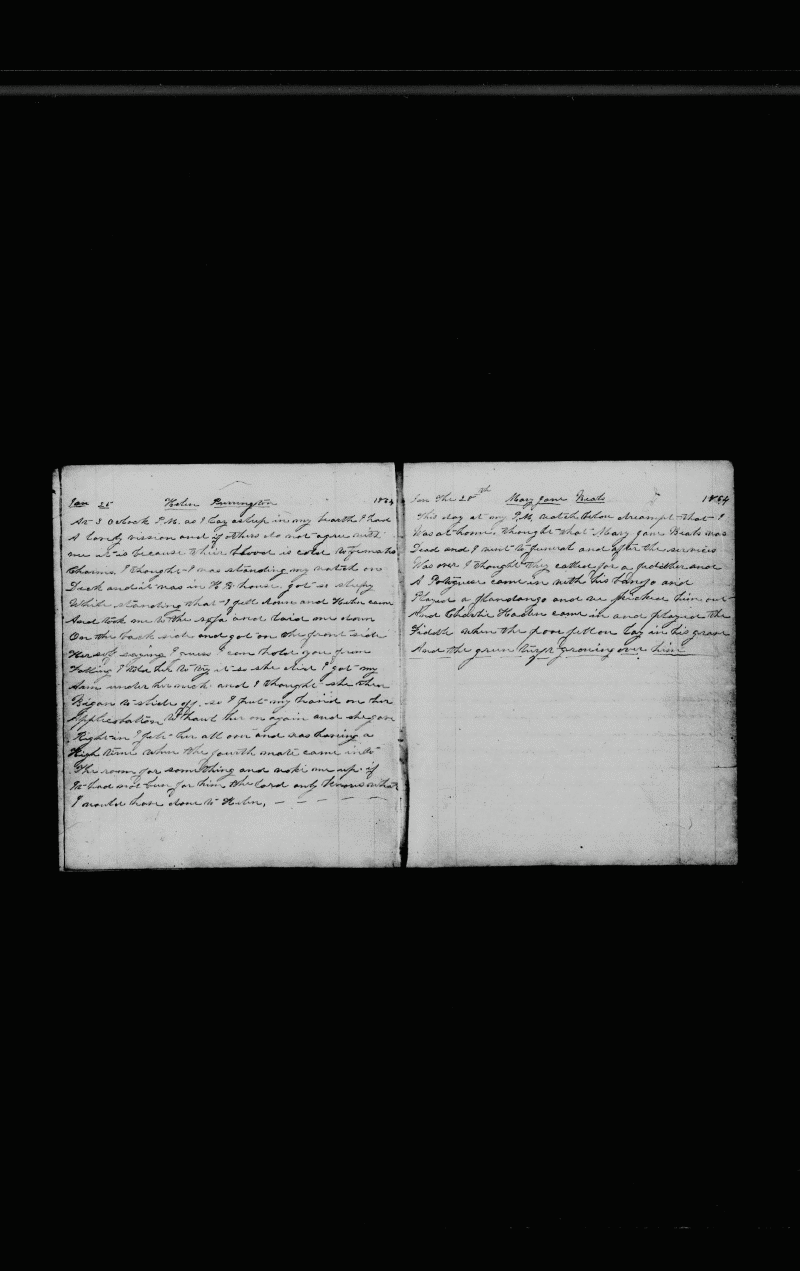 Jan 25 Helen Purrington 1864
At 3 Oclock P.M. as I lay asleep in my bearth I had
A handy vission and if others do not agree with
me it is because their blood is cold to female
Charms, I thought I was standing my watch on
Deck and it was in H.B. house, got so sleepy
While standing that I fell down and Helen came
And took me to the sofa and laid me down
On the back side and got on the front side
Herself saying I guess I can hold you from
Falling I told her to try it so she did I got my
Arm under her neck and I thought she then
Began to slide off, so I put my hand on her
to haul her on again and she gave
Right in I felt her all over and was having a
High time when the fourth mate came into
The room for something and woke me up if
It had not been for him the lord only knows what
I would have done to Helen, — — — — —
Jan The 28th Mary Jane Beals 1864
This day at my P.M. watch below dreampt that I
Was at home, thought that Mary Jane Beals was
Dead and I went to funeral and after the services
Was over I thought they called for a fiddler and
A Portiguee came in with his banjo and
Played a flandango and we pitched him out
And Charlie Haden came in and played the
Fiddle when the poor fellow lay in his grave
And the green turf growing over him